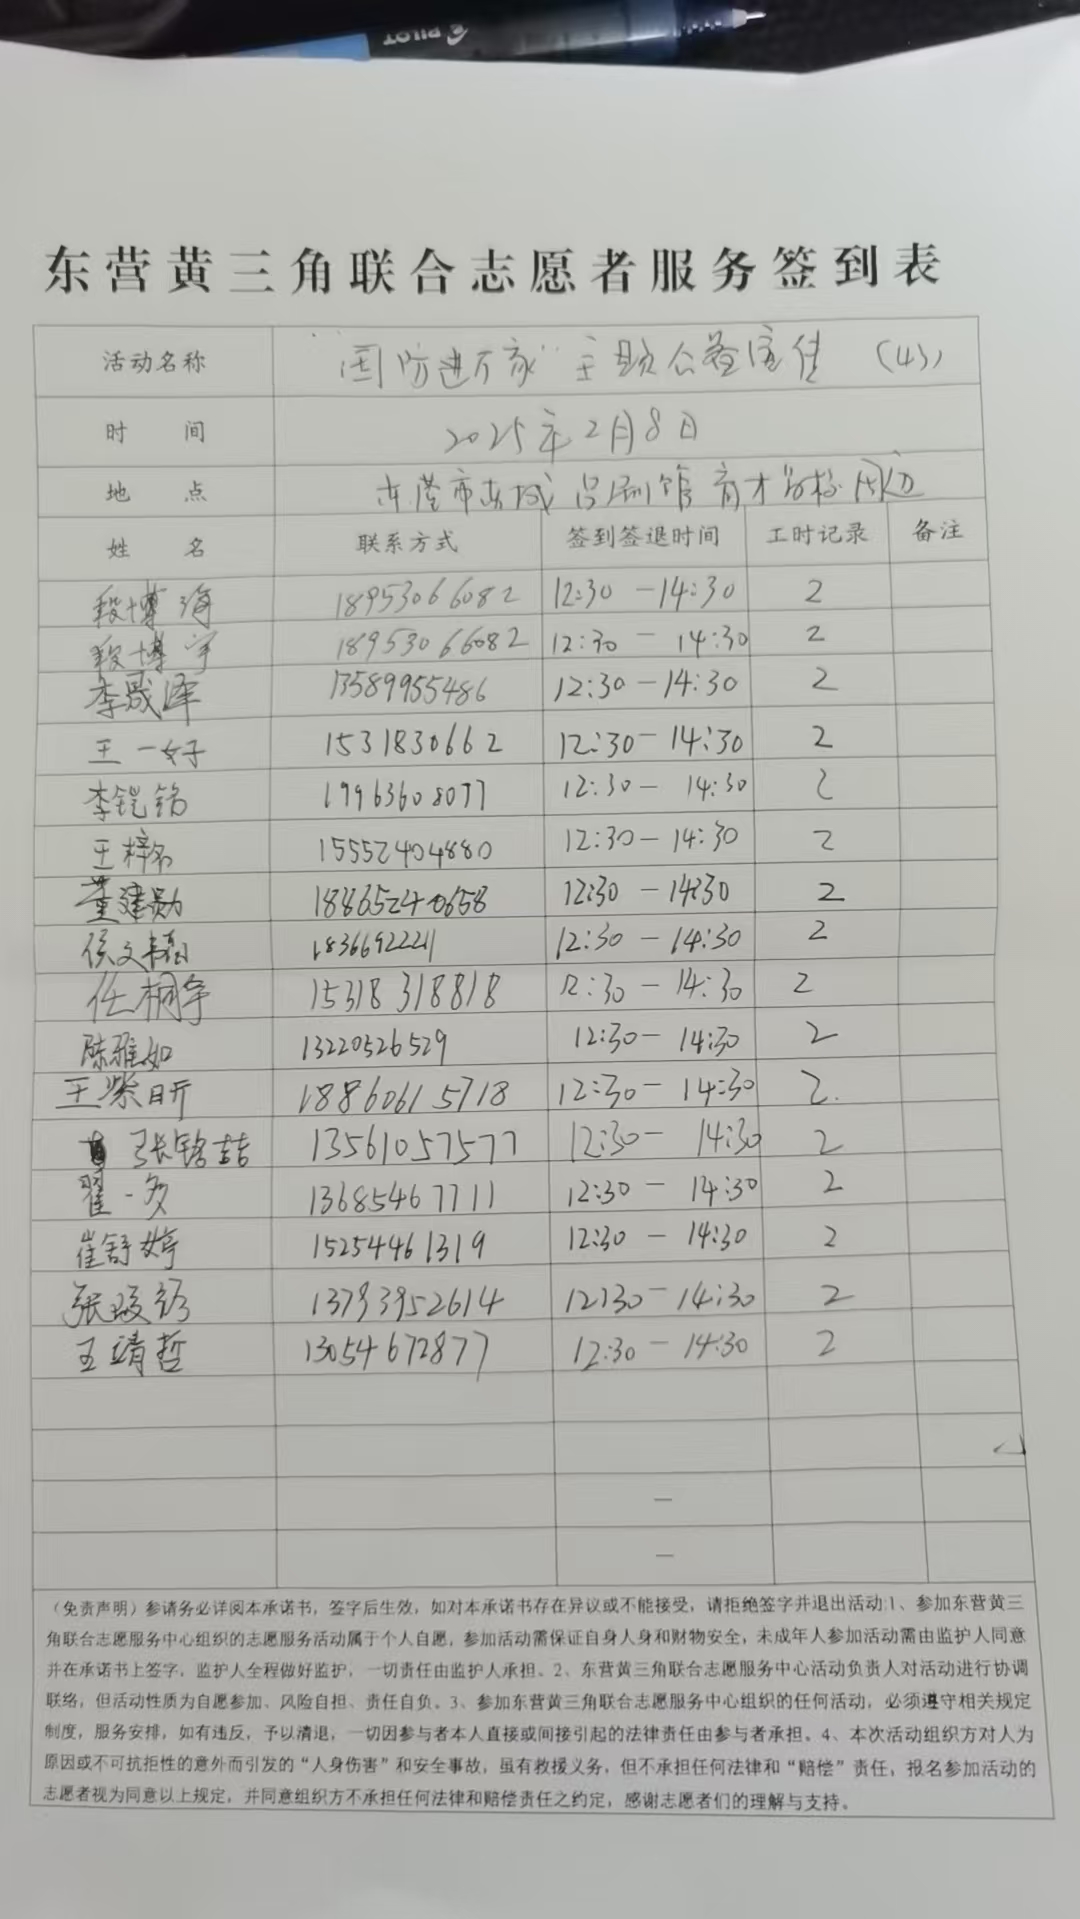 PILOT
东营黄三角联合志愿者服务签到表
活动名称 “国防进万家”主题公益宣传 (4)
时 间 2025年2月8日
地 点 东营市东城 吕剧馆 育才学校周边
姓 名 联系方式 签到签退时间 工时记录 备注
段博海 18953066082 12:30 — 14:30 2
段博宇 18953066082 12:30 — 14:30 2
李晟泽 13589955486 12:30 — 14:30 2
王一好 1531830662 12:30 — 14:30 2
李铠铭 19963608077 12:30 — 14:30 2
王梓名 15552404880 12:30 — 14:30 2
董建勋 18865240658 12:30 — 14:30 2
侯文 18366922211 12:30 — 14:30 2
任桐宇 15318318818 12:30 — 14:30 2
陈雅如 13220526529 12:30 — 14:30 2
王紫昕 18860615718 12:30 — 14:30 2.
张铭喆 13561057577 12:30 — 14:30 2
翟一多 13685467711 12:30 — 14:30 2
崔舒婷 15254461319 12:30 — 14:30 2
张 13793952614 12:30 — 14:30 2
王靖哲 13054672877 12:30 — 14:30 2
—
—
（免责声明）参请务必详阅本承诺书，签字后生效，如对本承诺书存在异议或不能接受，请拒绝签字并退出活动:1、参加东营黄三
角联合志愿服务中心组织的志愿服务活动属于个人自愿，参加活动需保证自身人身和财物安全，未成年人参加活动需由监护人同意
并在承诺书上签字，监护人全程做好监护，一切责任由监护人承担。2、东营黄三角联合志愿服务中心活动负责人对活动进行协调
联络，但活动性质为自愿参加、风险自担、责任自负。3、参加东营黄三角联合志愿服务中心组织的任何活动，必须遵守相关规定
制度，服务安排，如有违反，予以清退，一切因参与者本人直接或间接引起的法律责任由参与者承担。4、本次活动组织方对人为
原因或不可抗拒性的意外而引发的“人身伤害”和安全事故，虽有救援义务，但不承担任何法律和“赔偿”责任，报名参加活动的
志愿者视为同意以上规定，并同意组织方不承担任何法律和赔偿责任之约定，感谢志愿者们的理解与支持。